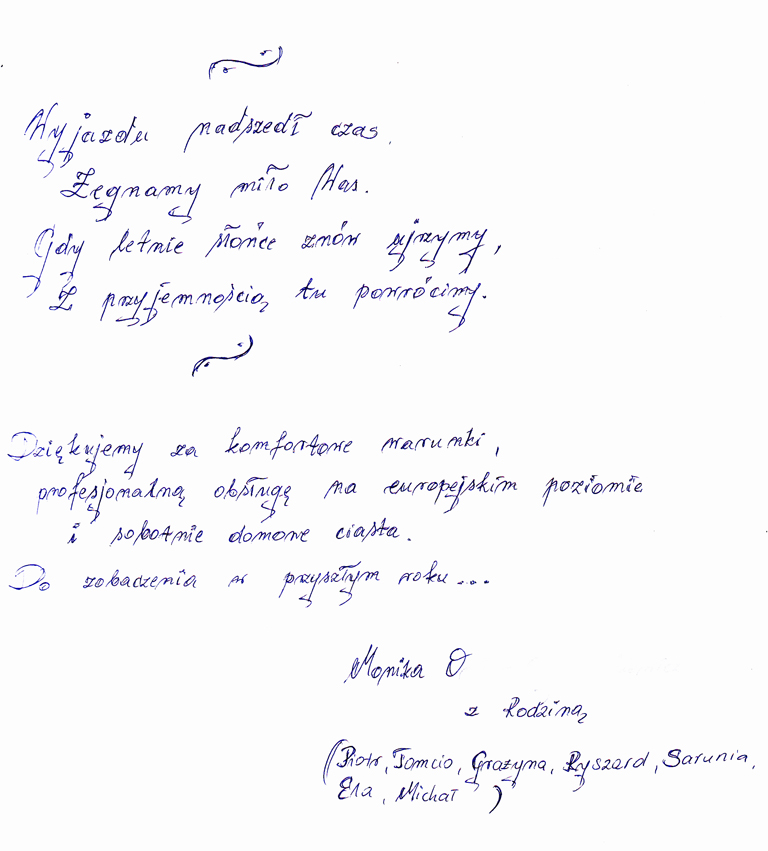 Wyjazdu nadszedł czas.
Żegnamy miło Was.
Gdy letnie słońce znów ujrzymy,
Z przyjemnością tu powrócimy.
Dziękujemy za komfortowe warunki,
profesjonalną obsługę na europejskim poziomie
i sobotnie domowe ciasta.
Do zobaczenia w przyszłym roku...
Monika O
z Rodziną
(Piotr, Tomcio, Grażyna, Ryszard, Sarunia,
Ela, Michał)